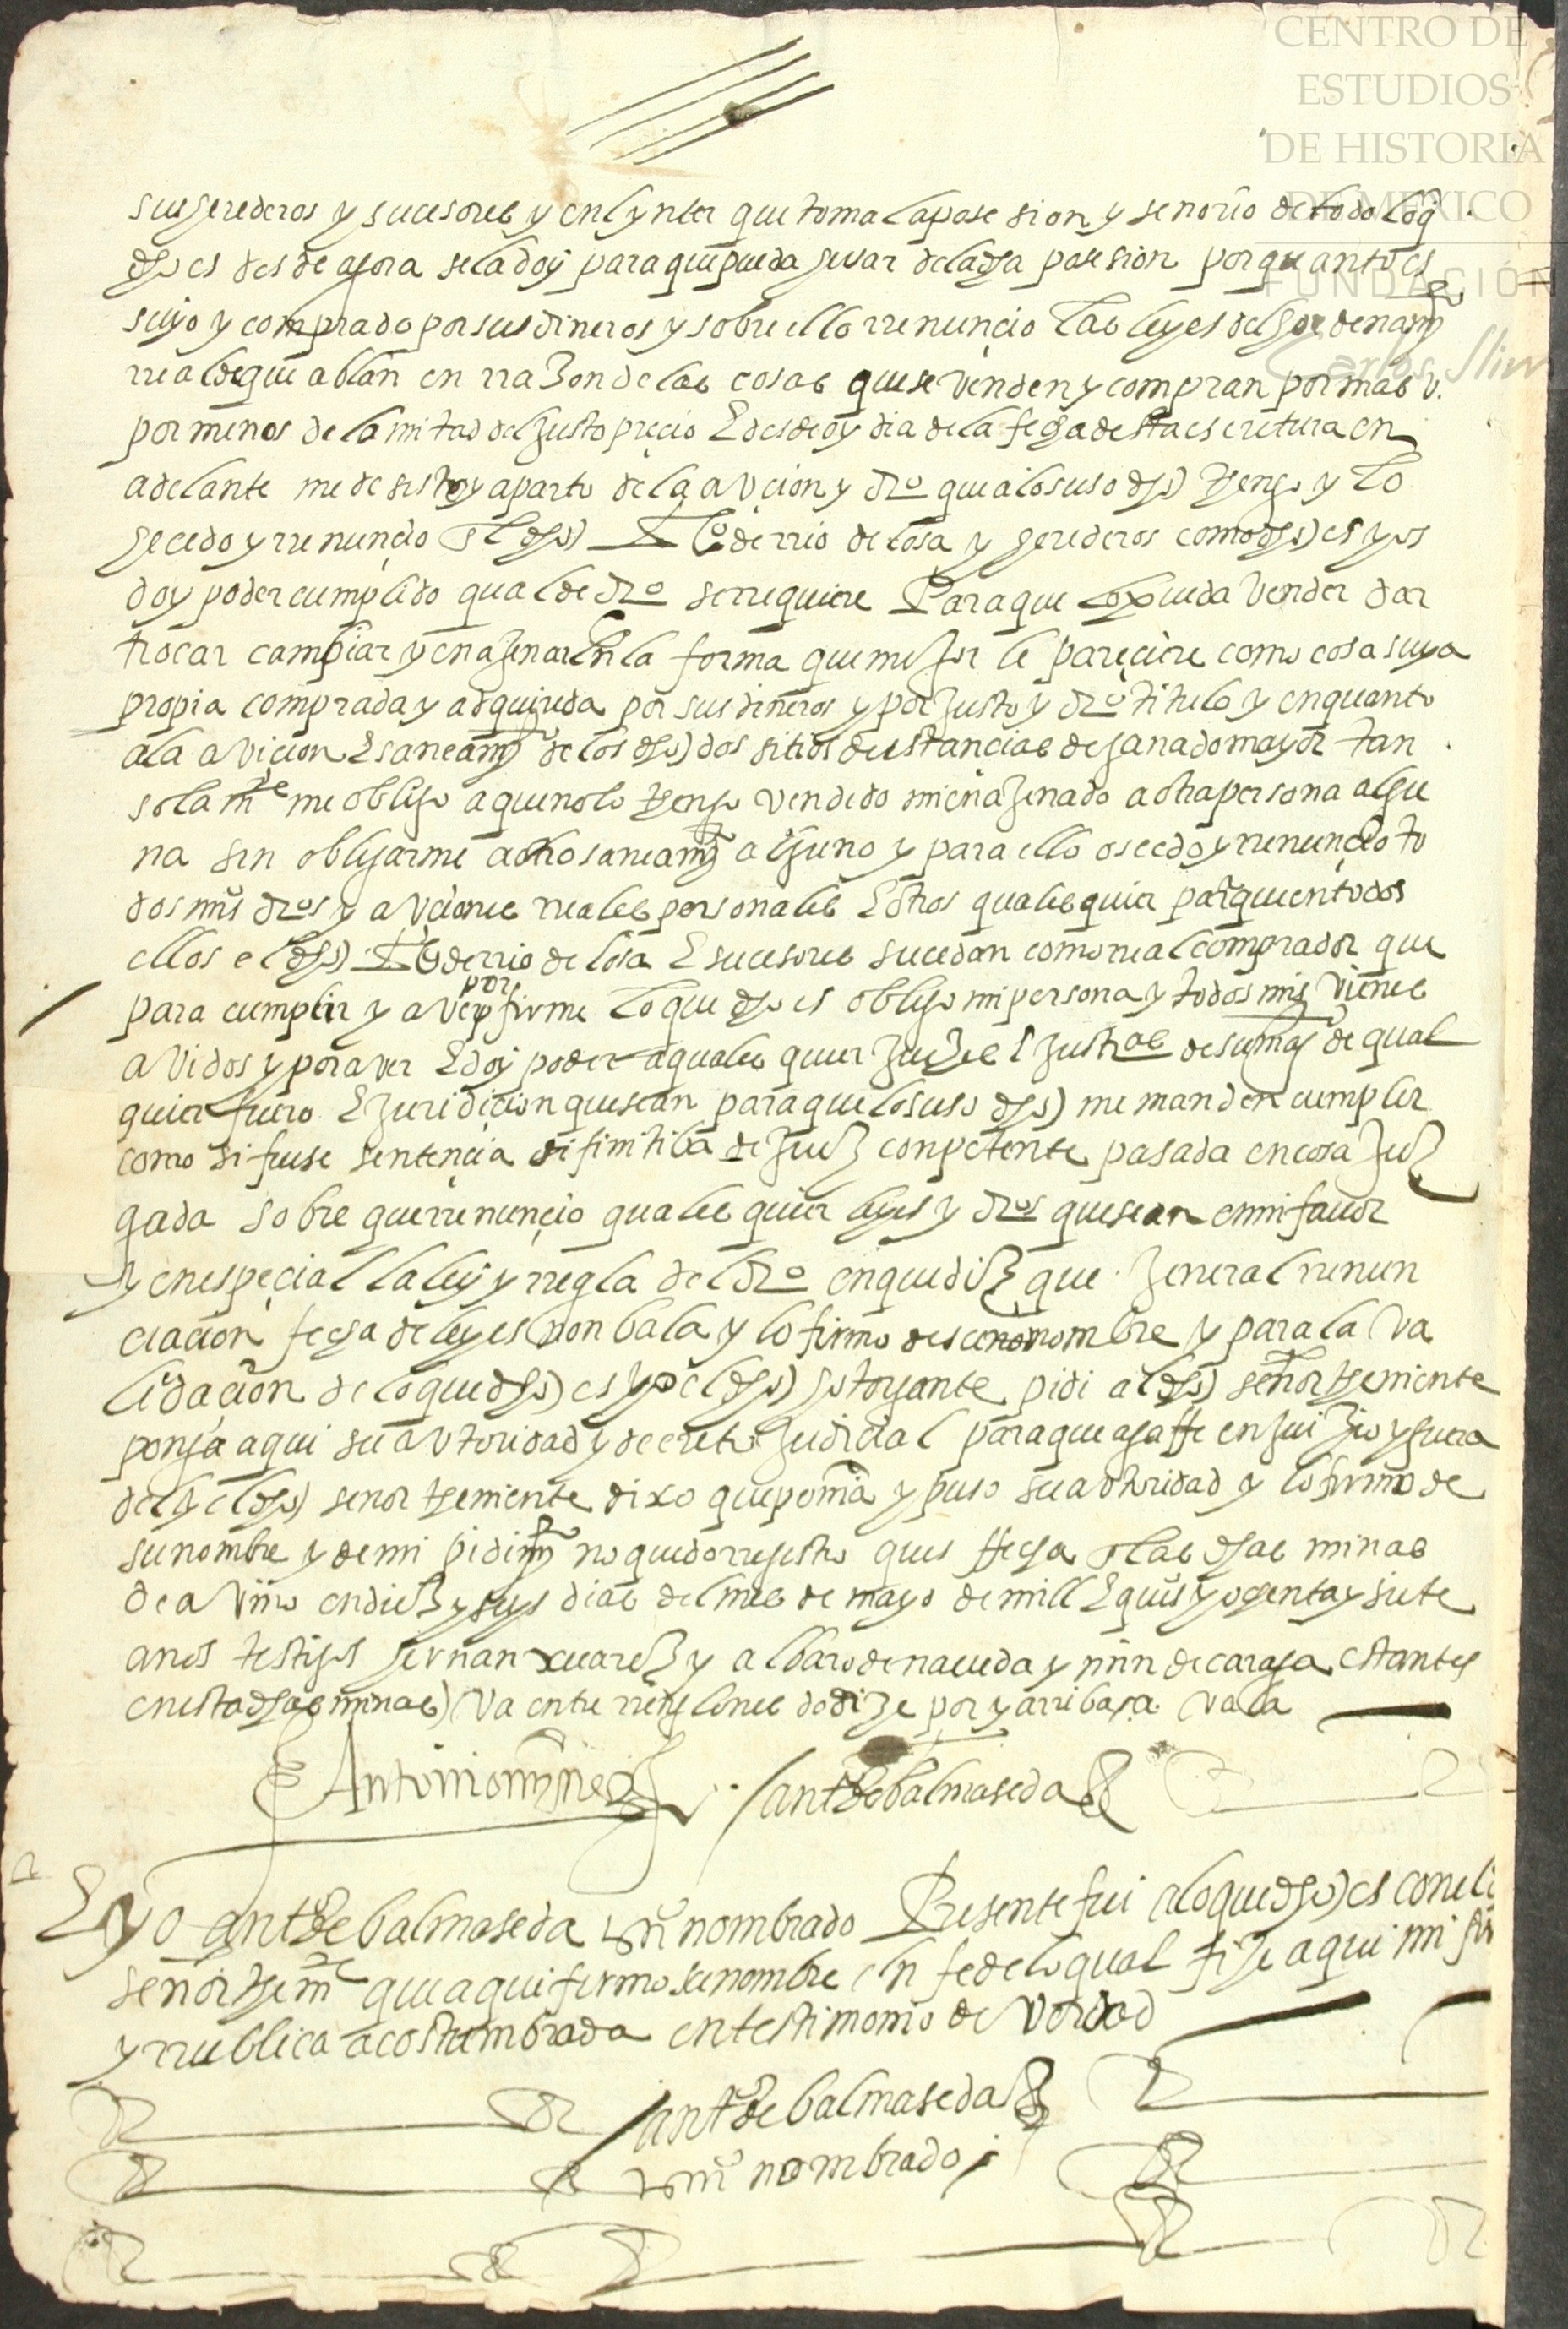 CENTRO DE
ESTUDIOS
DE HISTORIA
DE MEXICO
FUNDACIÓN
Carlos Slim
sus herederos y sucesores y enlynter que toma la posesion y senorio de todo lo q
dho es desde agora se la doy para que pueda husar de la dha posesion por quanto es
suyo y comprado por sus dineros y sobre ello rrenuncio las leyes del hordenamyº
rreal que ablan en rrazon de las cosas que se venden y compran por mas v
por menos de la mitad del justo precio E desde oy dia de la fecha desta escretura en
adelante me desisto y aparto de la avcion y drº que a lo suso dho) tengo y lo
cedo y rrenuncio al dho) lº de rrio de losa y herederos como dho) es y os
doy poder cumplido qual de drº se rrequiere Para que lo pueda vender dar
trocar cambiar y enajenar En la forma que mejor le pareciere como cosa suya
propia comprada y adquirida por sus dineros y por justo y drº titulo y en quanto
a la avicion E saneamyº de los dho) dos sitios de estancias de ganado mayor tan
solamte me obligo a que no lo tengo vendido ni enajenado a otra persona algu
na sin obligarme a otro saneamyº alguno y para ello os cedo y rrenuncio to
dos mis drºs y avciones rreales personales E otros qualesquier para que en todos
ellos el dho) lº de rrio de losa E sucesores sucedan como rreal comprador que
por
para cumplir y aver firme lo que dho es obligo mi persona y todos mis vienes
avidos y por aver E doy poder a quales quier juezes E justas de su magº de qual
quier fuero E juridicion que sean para que lo suso dho) me manden cumplir
como si fuese sentencia difinitiba de juez conpetente pasada en cosa juz
gada sobre que rrenuncio quales quier leyes y drºs que sean en mi favor
y en especial la ley y rregla del drº en que diz que jeneral renun
ciacion fecha de leyes non bala y lo firmo de su nombre y para la va
lidacion de lo que dho) es yo el dho) hotorgante pidi al dho) señor teniente
ponga aqui su avtoridad y decreto judicial para que aga ffe en juizio y fuera
del y el dho) senor teniente dixo que ponia y puso su avtoridad y lo firmo de
su nombre y de mi pidimyº no quedo rregistro ques ffecha En las dhas minas
de aviño en diez y seys dias del mes de mayo de mill E quisº y ochenta y siete
anos testigos hernan xuarez y albaro de naveda y mīn de caraga estantes
en estas dhas minas) Va entre rrenglones do dize por y arriba sa vala
Antonio mnez antº de balmaseda
E yo antº de balmaseda esnº nombrado Presente fui a lo que dho) es con el
señor tenite que aqui firmo su nombre En fe de lo qual fize aqui mi fir
y rrublica acostumbrada en testimonio de verdad
antº de balmaseda
esnº nombrado